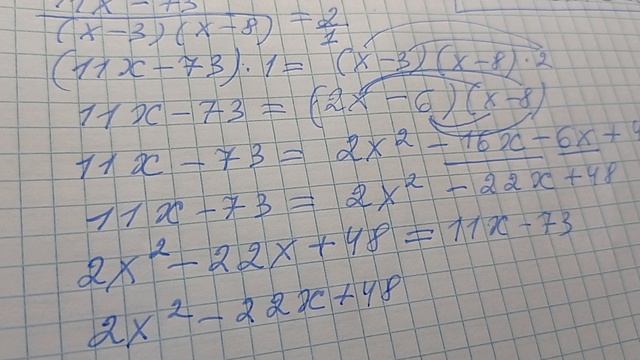 11x - 73
(x-3)(x-8) = 2/1
(11x-73)·1 = (x-3)(x-8)·2
11x-73 = (2x-6)(x-8)
11x-73 = 2x² - 16x - 6x + 4
11x-73 = 2x² - 22x + 48
2x² - 22x + 48 = 11x - 73
2x² - 22x + 48